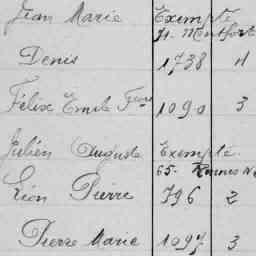 Jean Marie Exempté
Denis 1738 4
Félix Emile 1090 3
Julien Auguste Exempté
65. Rennes
Léon Pierre 796 2
Pierre Marie 1097 3